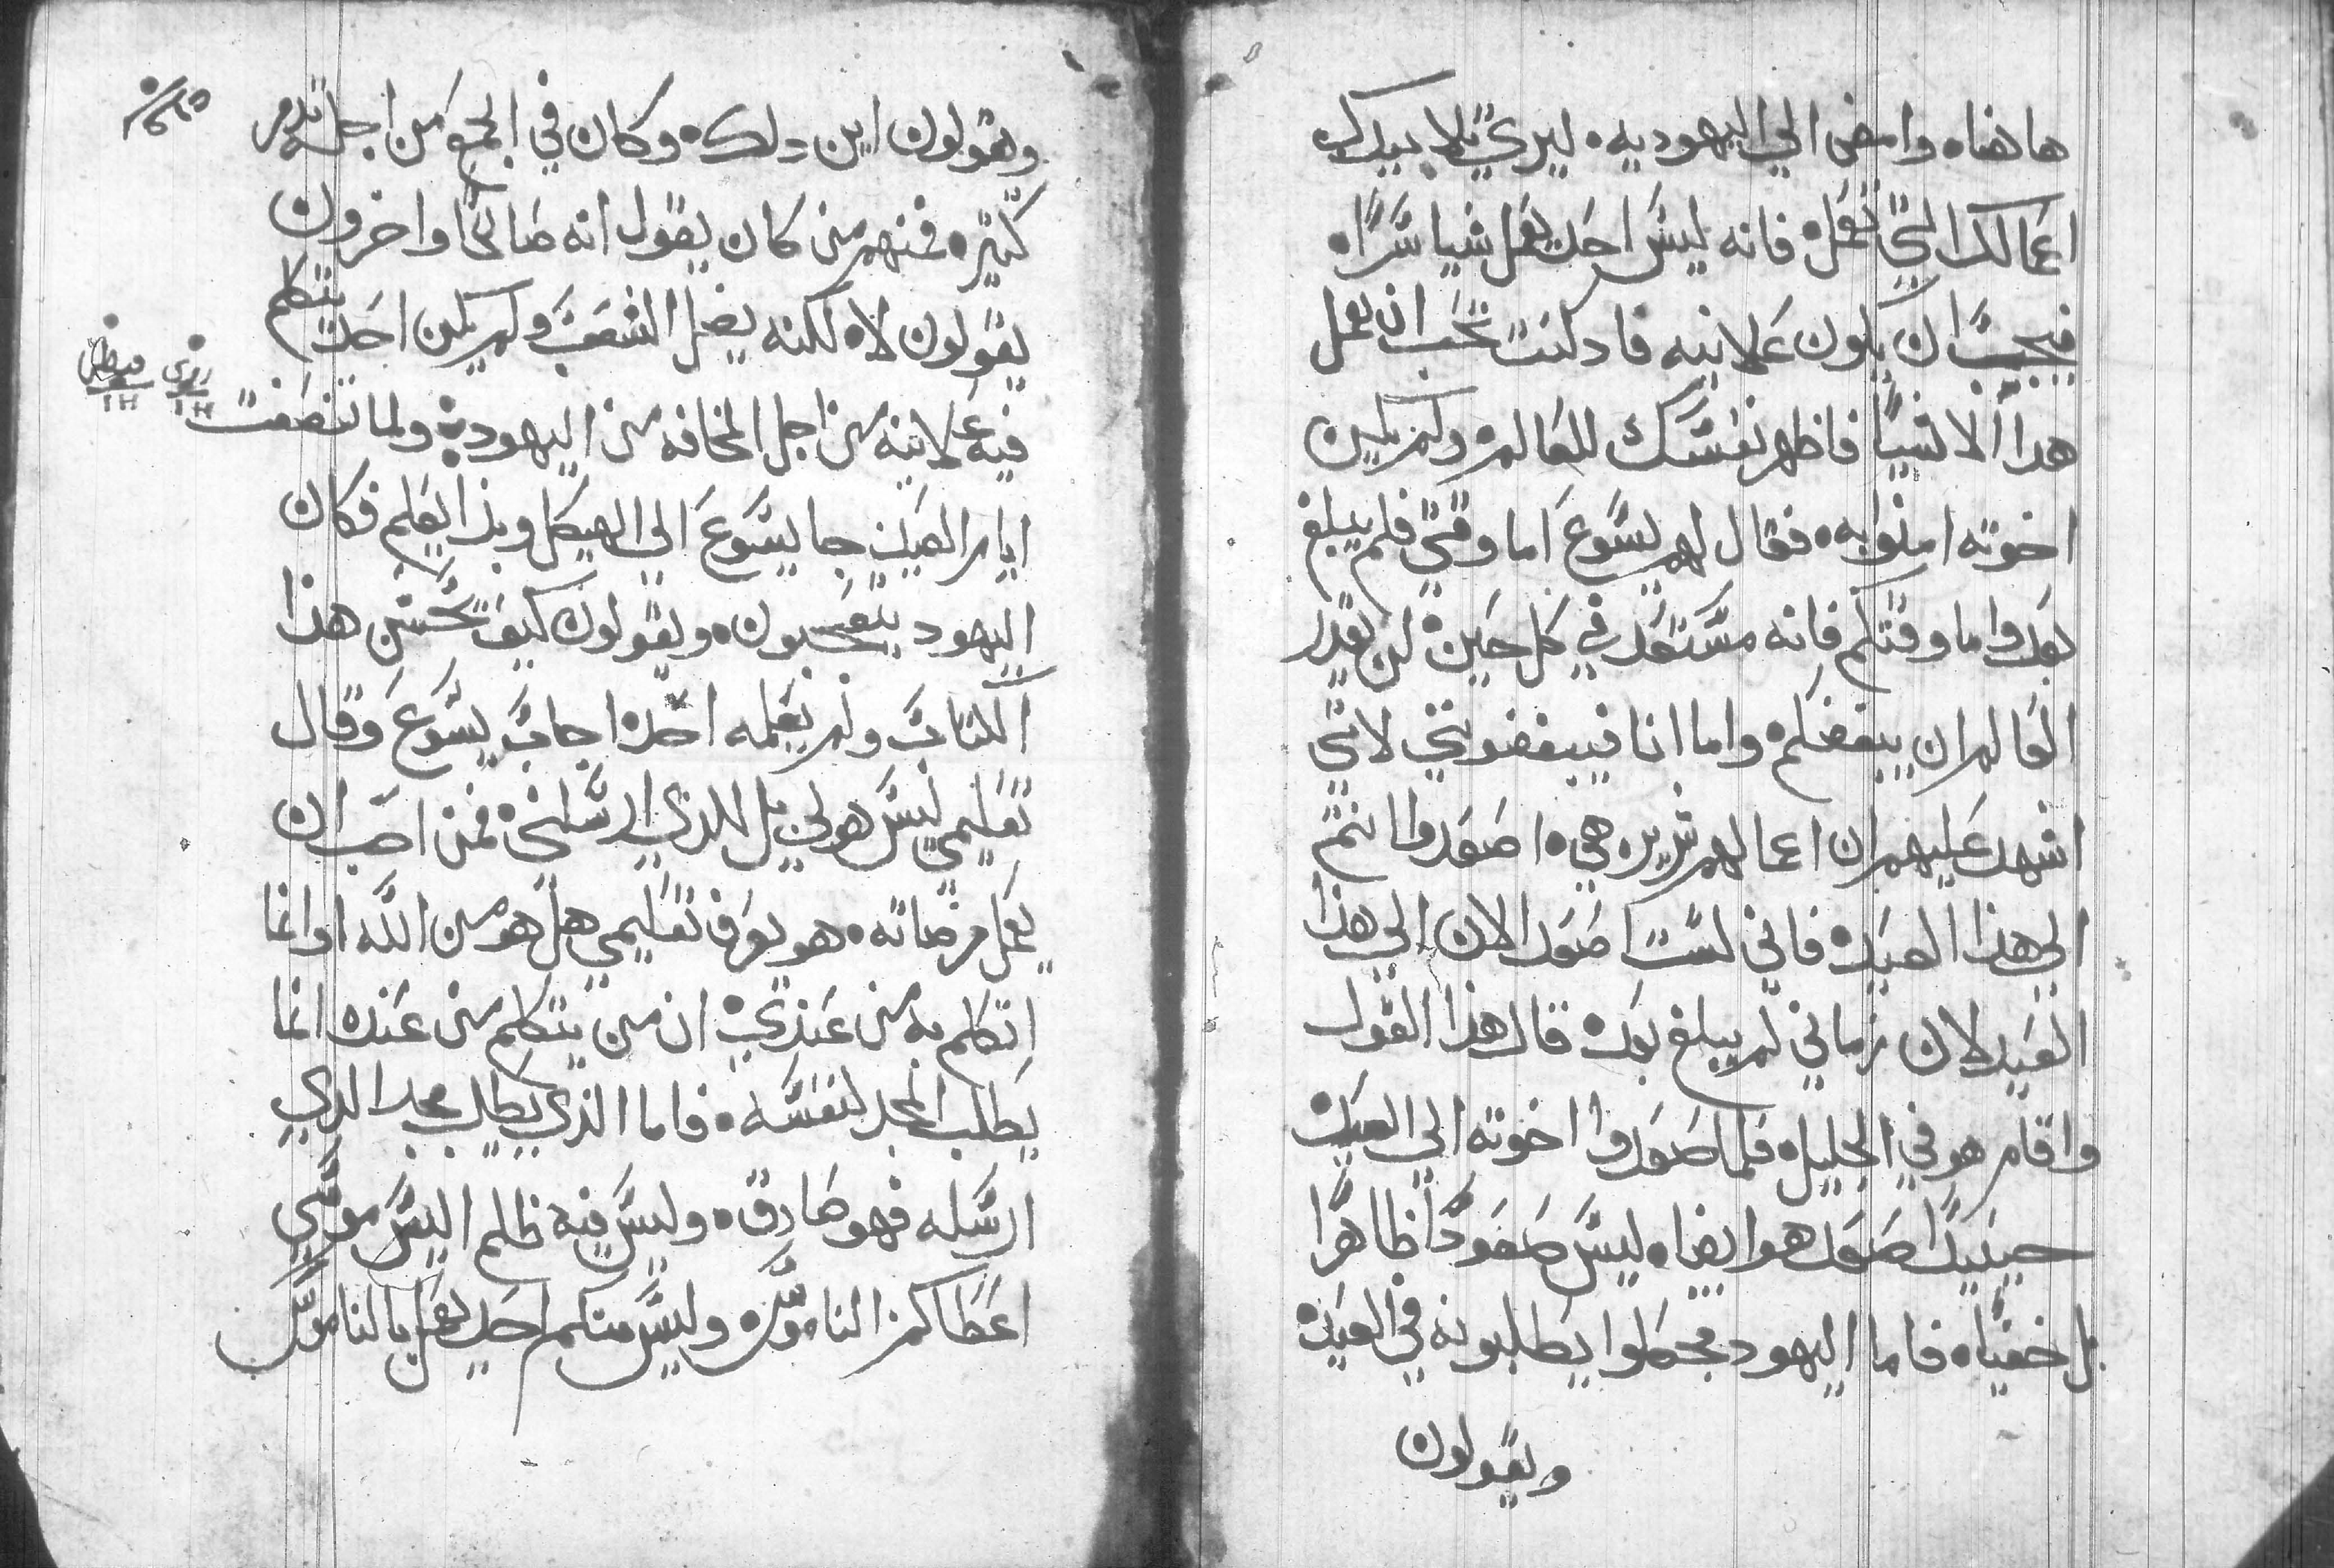 هاهنا. وامضى الي اليهوديه. ليري تلاميدك
اعمالك التي تعمل. فانه ليس احد يعمل شيا سرا.
فيجب ان يكون علانيه فاد كنت تحب ان تعمل
هدا الاشيا فاظهر نفسك للعالم. ولم يكن
اخوته امنوا به. فقال لهم يسوع اما وقتي فلم يبلغ
بعد واما وقتكم فانه مستعد في كل حين. لن يقدر
العالم ان يبغضكم. واما انا فيبغضوني لاني
اشهد عليهم ان اعمالهم شريره هي. اصعدوا انتم
الي هذا العيد. فاني لست اصعد الان الي هذا
العيد لان زماني لم يبلغ بعد. قال هذا القول
واقام هو في الجليل. فلما صعدوا اخوته الي العيد.
حينيدا صعد هو ايضا. ليس صعودا ظاهرا
بل خفيا. فاما اليهود فجعلوا يطلبونه في العيد.
ويقولون
ويقولون اين دلك. وكان في الجمع من اجله تدمر
كثيره فمنهم من كان يقول انه صالحا واخرون
يقولون لا. لكنه يضل الشعب ولم يكن احد يتكلم
فيه علانيه من اجل المخافه من اليهود. ولما تنصفت
ايام العيد جا يسوع الي الهيكل وبدا يعلم فكان
اليهود يتعجبون. ويقولون كيف يحسن هذا
الكتاب ولم يعلمه احد. اجاب يسوع وقال
تعليمي ليس هو لي بل للذي ارسلني. فمن احب ان
يعمل مرضاته. هو يعرف تعليمي هل هو من الله او انما
اتكلم به من عندي. ان من يتكلم من عنده انما
يطلب المجد لنفسه. فاما الذي يطلب مجد الذي
ارسله فهو صادق. وليس فيه ظلم اليس موسي
اعطاكم الناموس. وليس منكم احد يعمل بالناموس